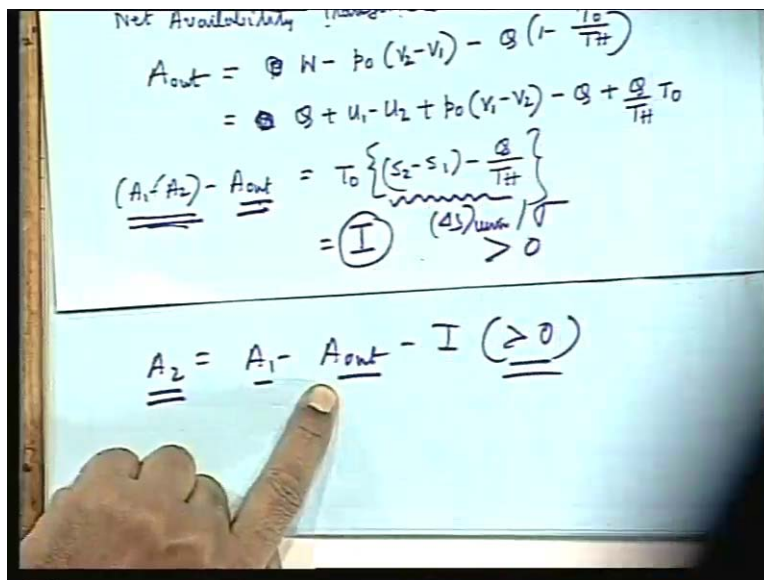 Net Availability Transfer
A_out = W - p0 (V2 - V1) - Q (1 - T0/TH)
= Q + U1 - U2 + p0 (V1 - V2) - Q + Q/TH T0
(A1 - A2) - A_out = T0 { (S2 - S1) - Q/TH }
= I (ΔS)univ / σ
> 0
A2 = A1 - A_out - I (≥ 0)